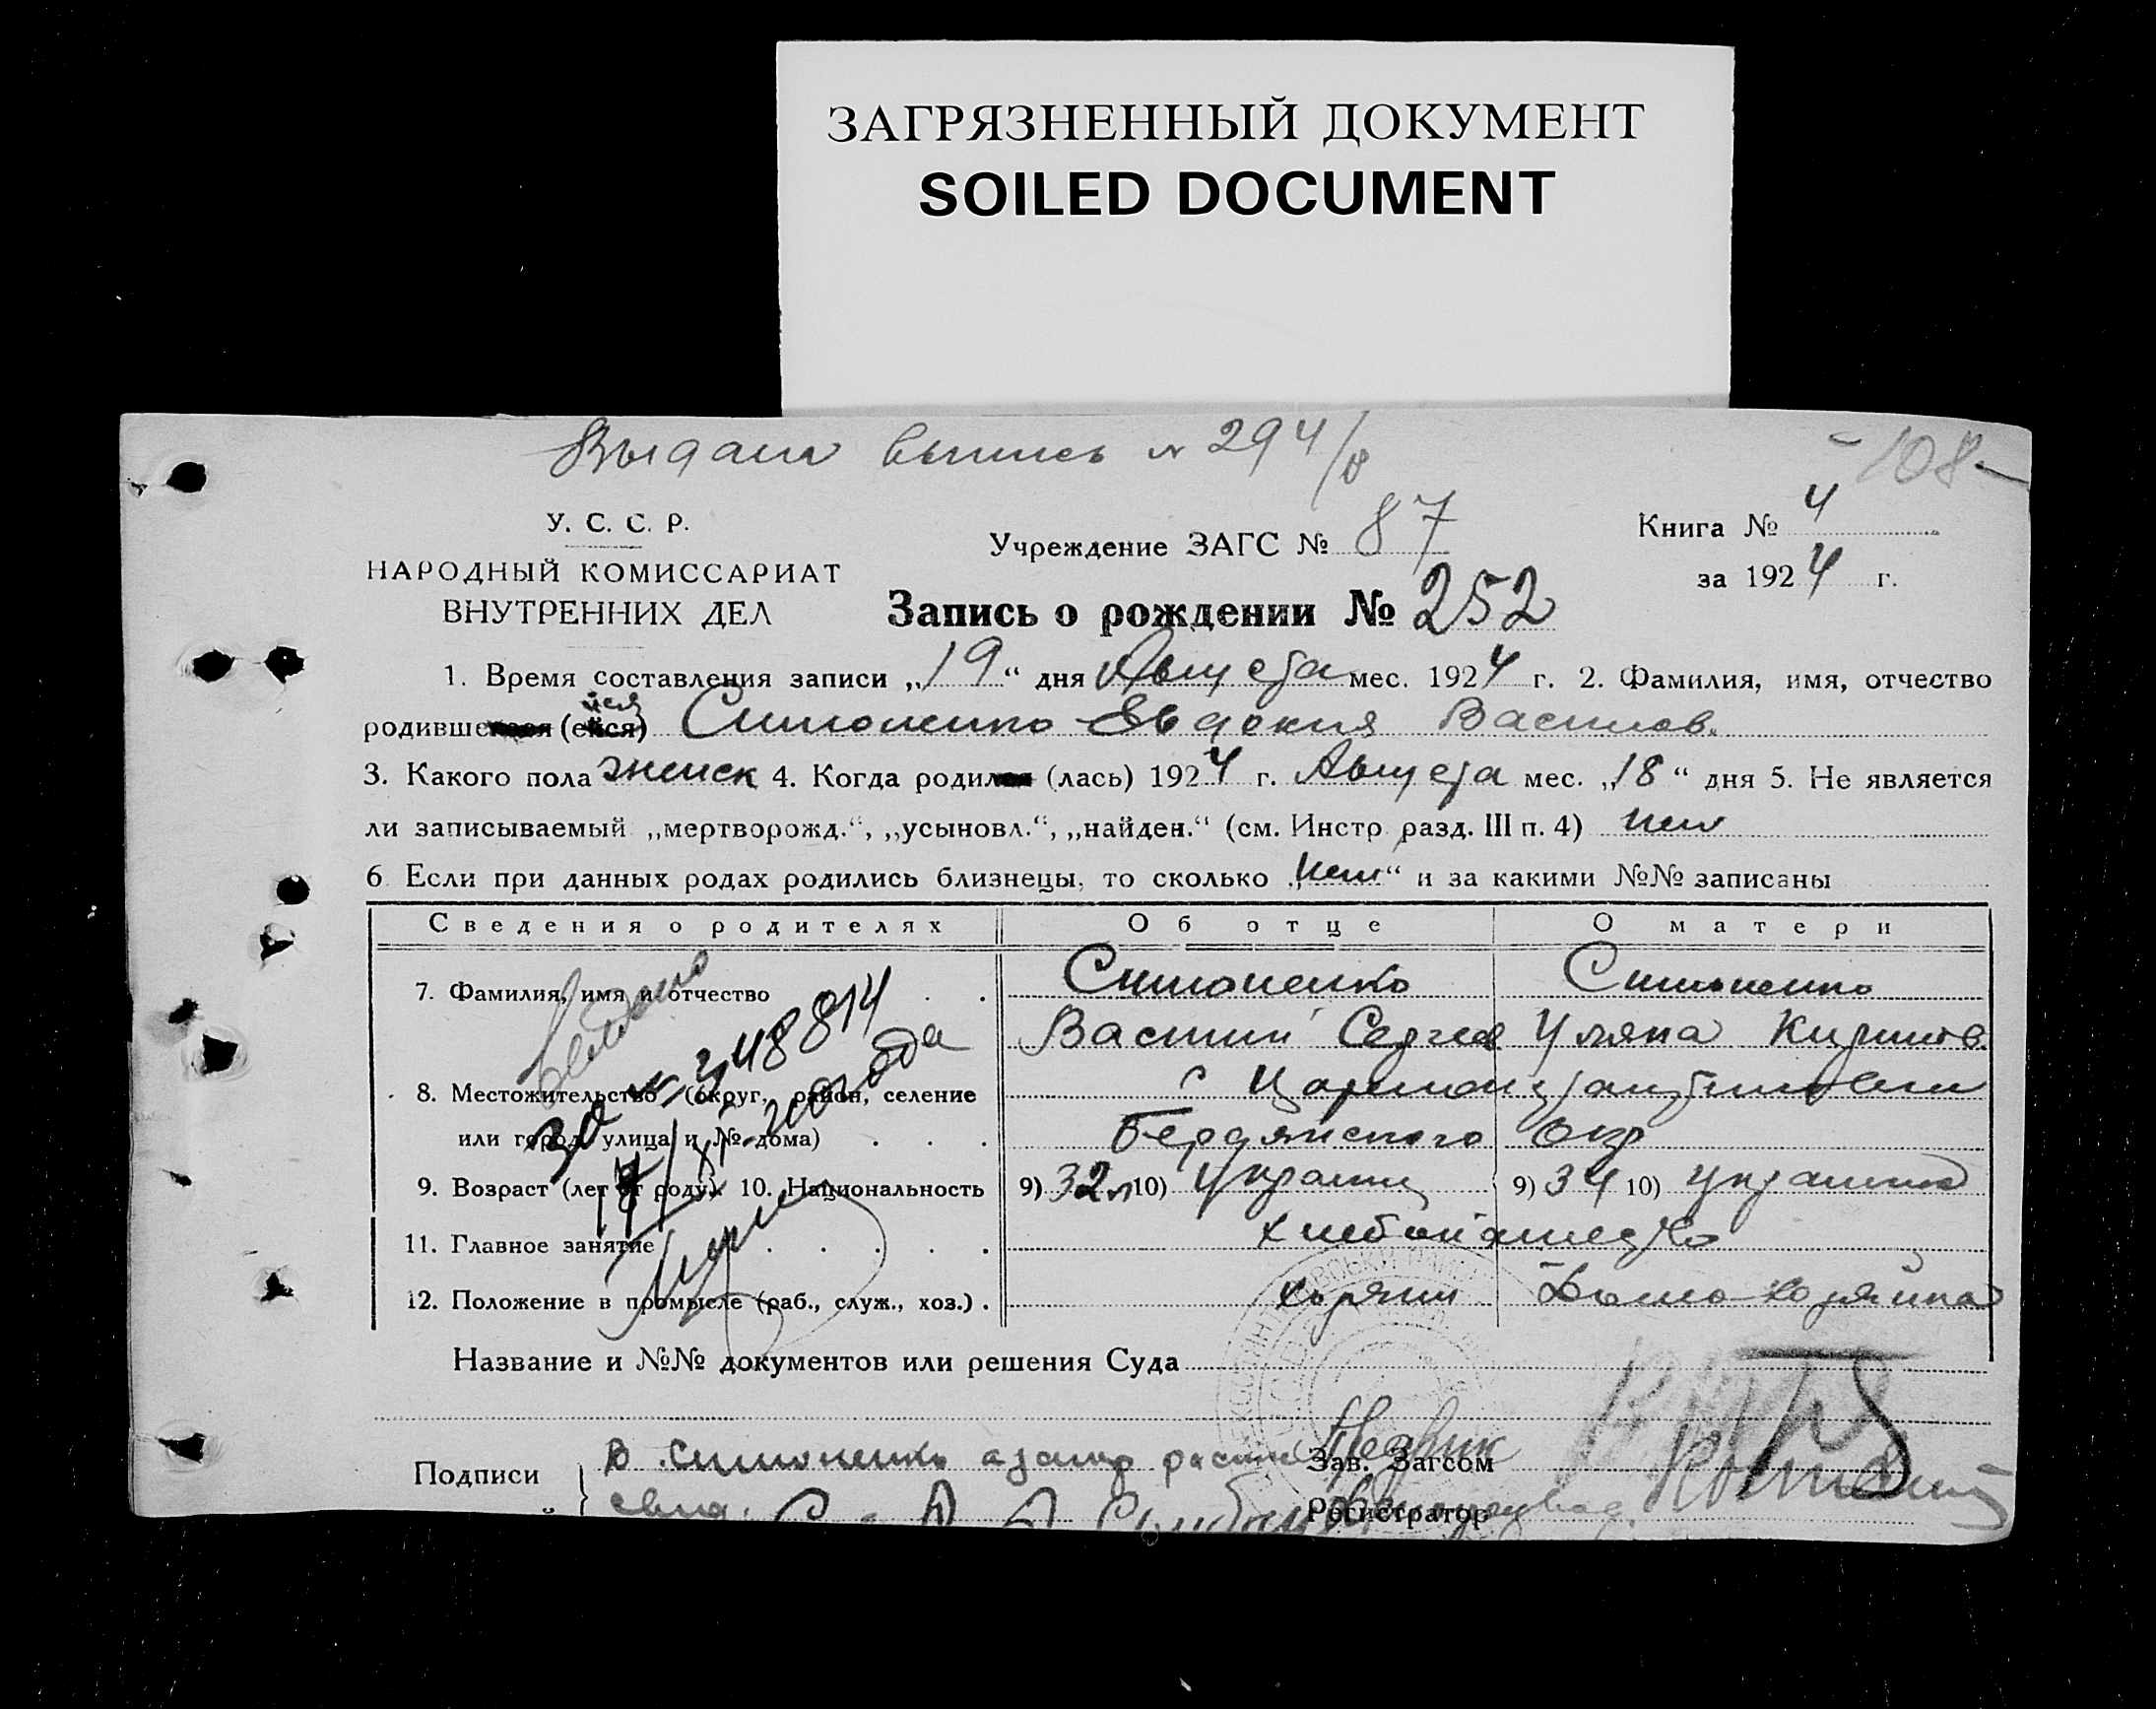 ЗАГРЯЗНЕННЫЙ ДОКУМЕНТ
SOILED DOCUMENT
Выдана выпись № 294/
-108-
У. С. С. Р.
НАРОДНЫЙ КОМИССАРИАТ
ВНУТРЕННИХ ДЕЛ
Учреждение ЗАГС № 87
Книга № 4
за 1924 г.
Запись о рождении № 252
1. Время составления записи „19“ дня Августа мес. 1924 г. 2. Фамилия, имя, отчество
родивше (ейся) Симоненко Евдокия Васильев.
3. Какого пола женск 4. Когда родил (лась) 1924 г. Августа мес. „18“ дня 5. Не является
ли записываемый „мертворожд.“, „усыновл.“, „найден.“ (см. Инстр разд. III п. 4) нет
6 Если при данных родах родились близнецы, то сколько „нет“ и за какими №№ записаны
Сведения о родителях Об отце О матери
7. Фамилия, имя и отчество . . Симоненко Симоненко
Василий Сергеев Уляна Кирилов.
8. Местожительство (округ, район, селение с Царе
или город, улица и № дома) . . . Бердянского Окр
9. Возраст (лет от роду) 10. Национальность 9) 32 л 10) Украинц 9) 34 10) Украинка
11. Главное занятие . . . . . хлебопашество
12. Положение в промысле (раб., служ., хоз.) . хозяин Домохозяйка
за № 348814
Название и №№ документов или решения Суда
Подписи В. Симоненко Зав. Загсом
Регистратор